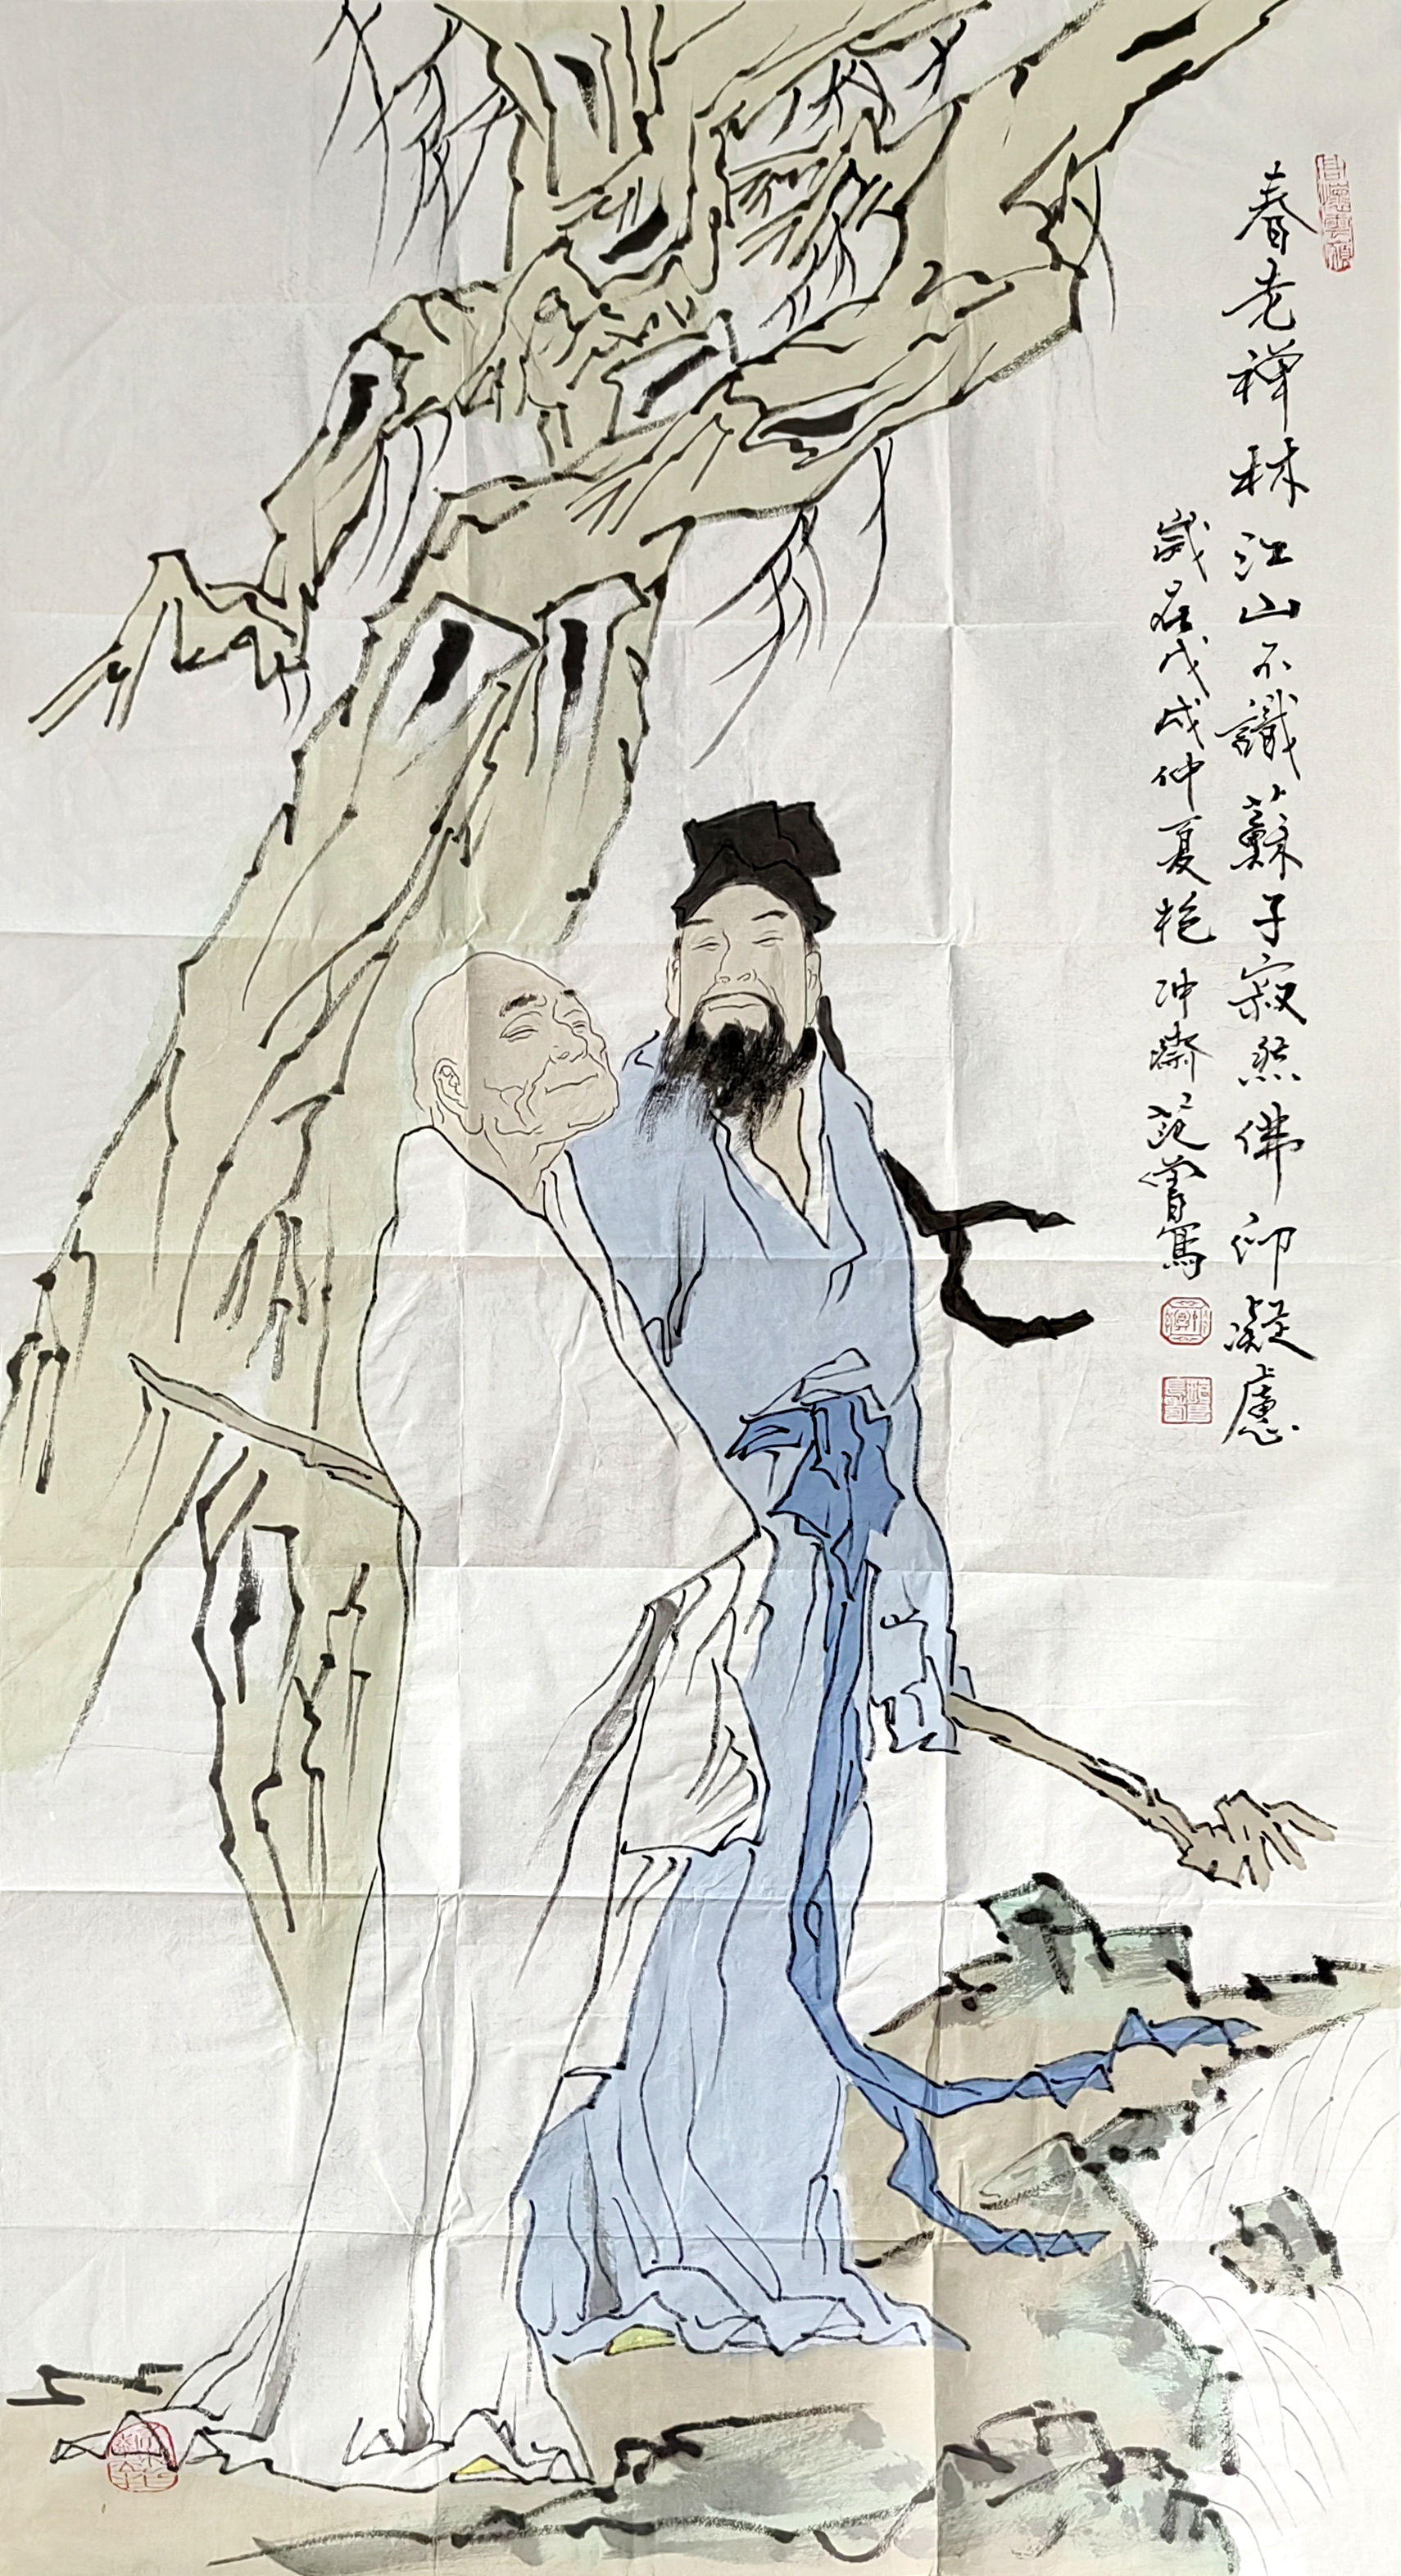 春老禅林江山不識蘇子寂然佛印凝慮
歲在戊戌仲夏抱冲齋范曾寫